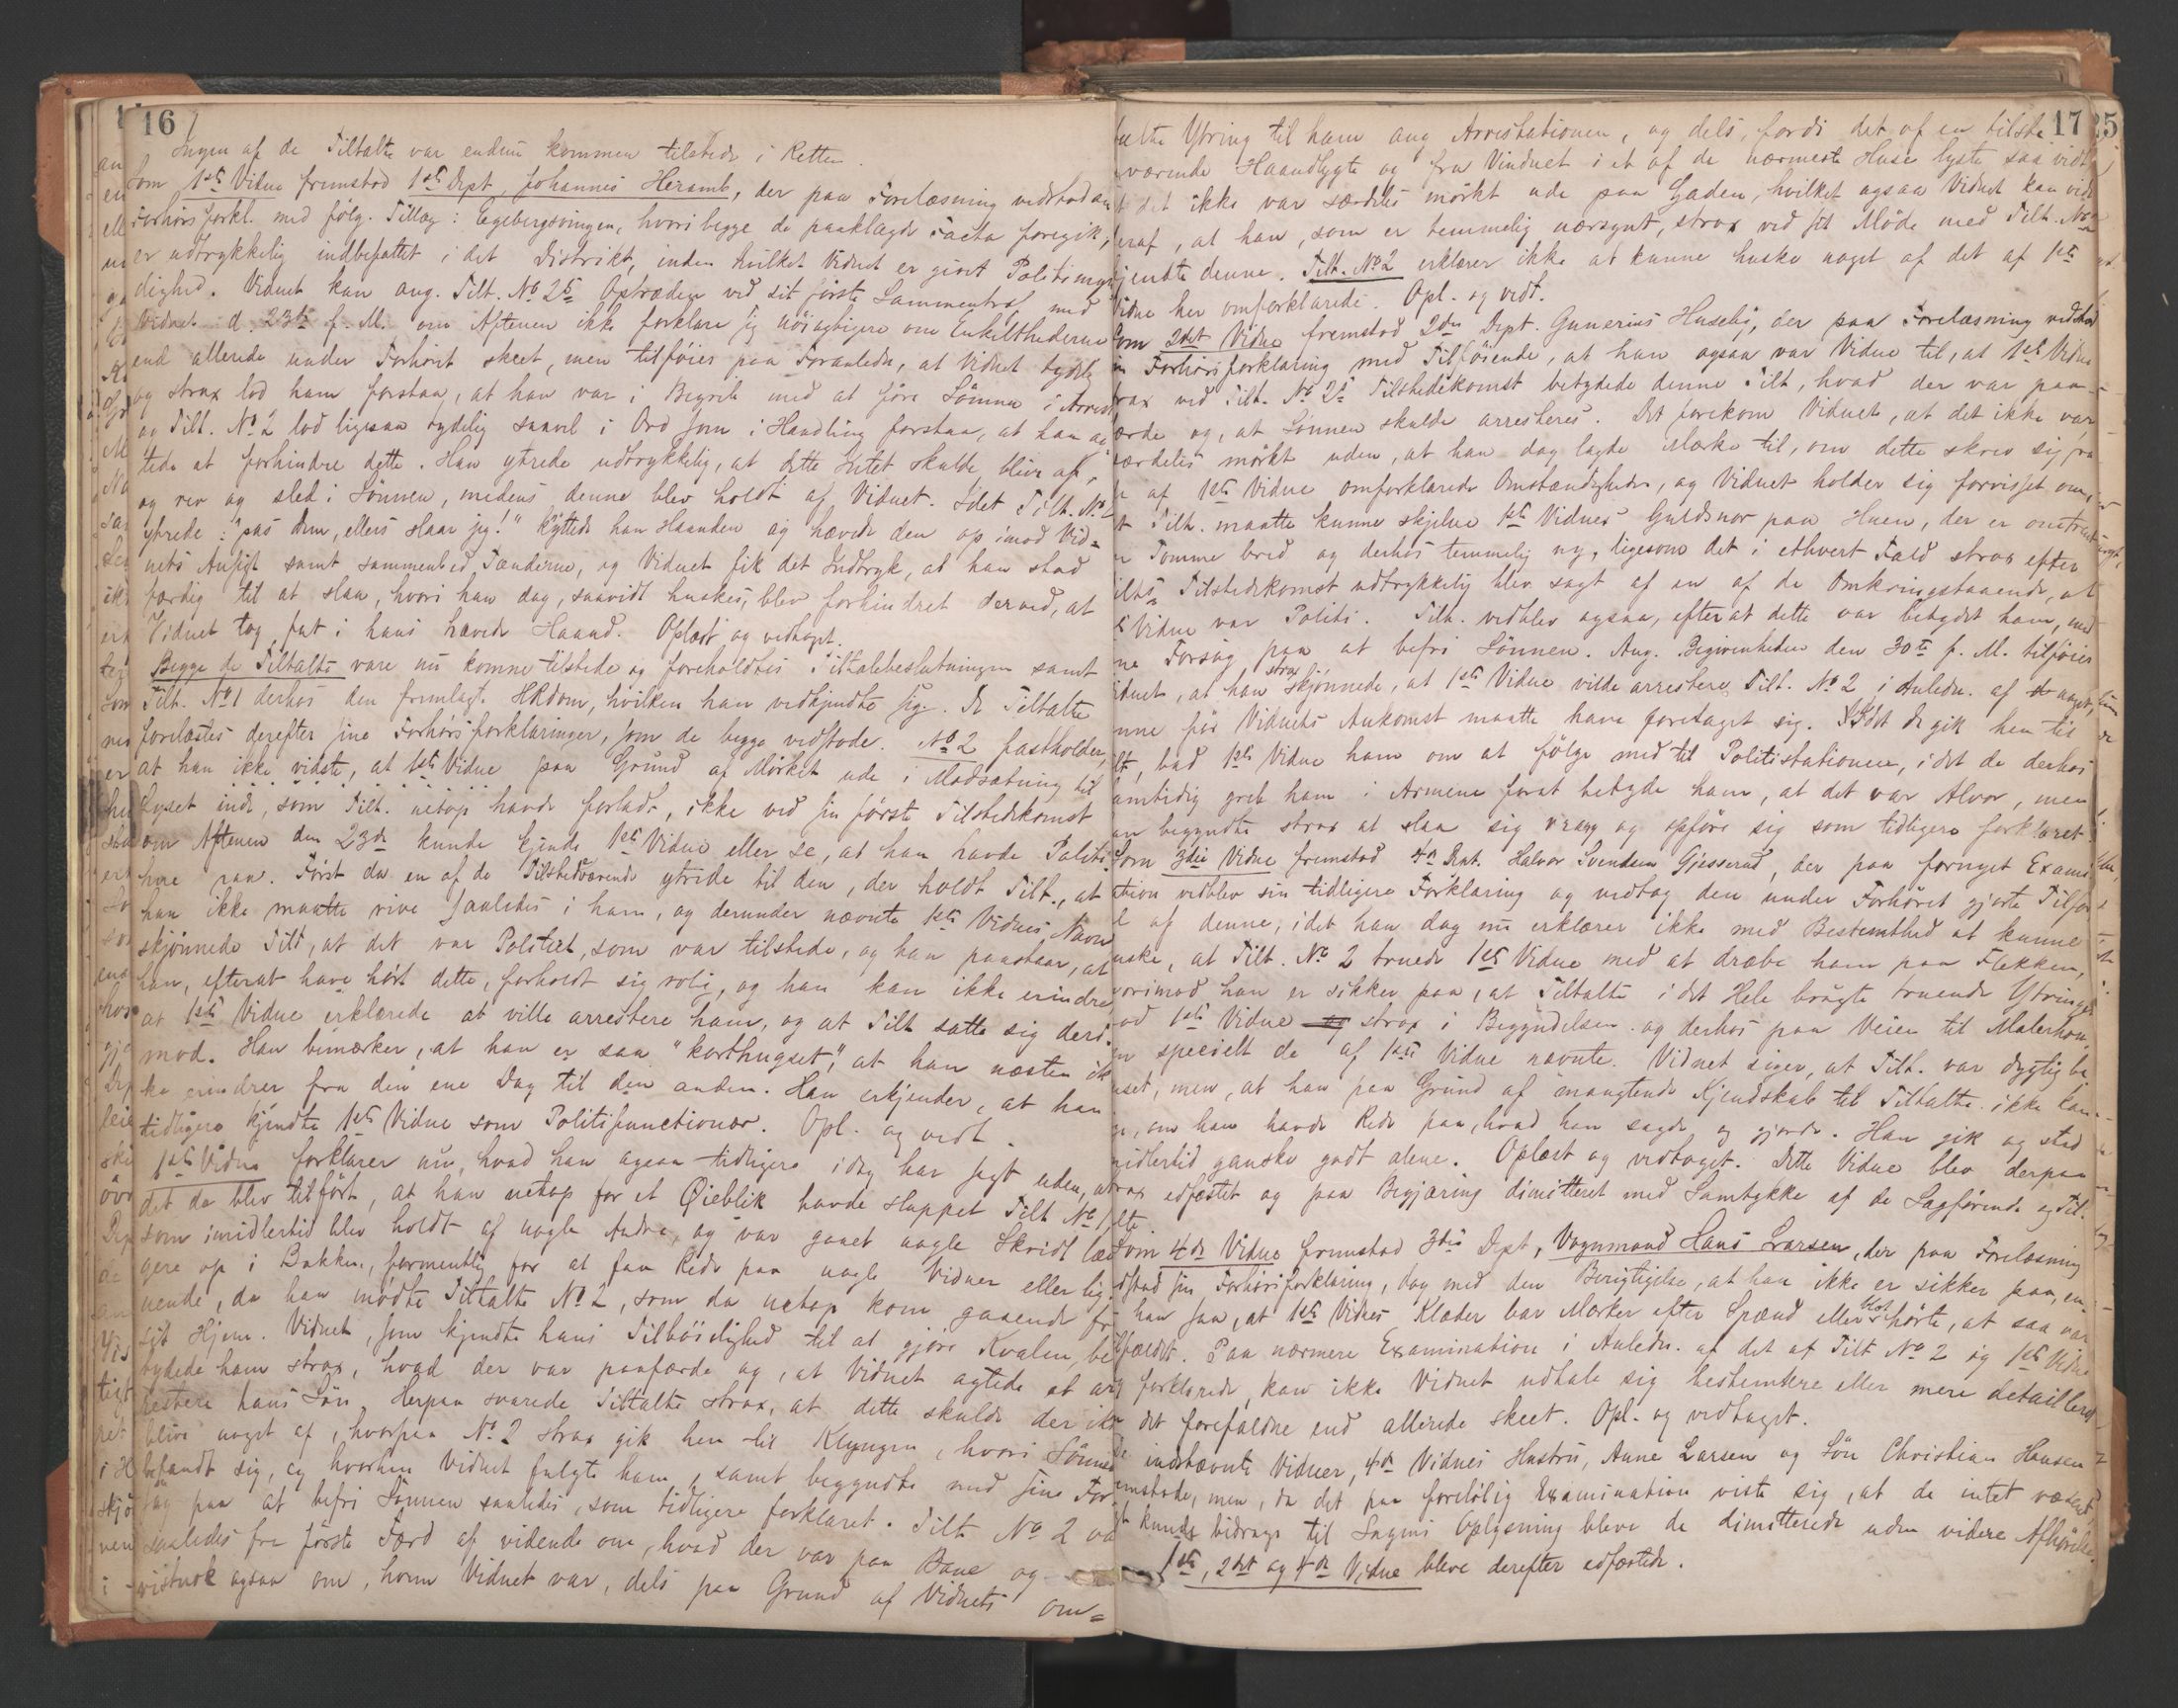 16
Ingen af de Tiltalte var endnu kommen tilstede i Retten.
Som 1ste Vidne fremstod 1ste Dept. Johannes Heramb, der paa Forelæsning vedstod sin
Forhørsforkl. med følg. Tillæg: Egebergsvingen, hvori begge de paaklagede Facta foregik,
er udtrykkelig indbefattet i det Distrikt, inden hvilket Vidnet er givet Politimyn
dighed. Vidnet kan ang. Tilt. No 2s Optræden ved sit første Sammentræf med
Vidnet d. 23de f. M. om Aftenen ikke forklare sig nöiagtigere om Enkelthederne
end allerede under Forhöret skeet, men tilföies paa Foranledn., at Vidnet tydelig
og strax lod ham forstaa, at han var i Begreb med at føre Sönnen i Arrest
og Tilt. No 2 lod ligesaa tydelig saavel i Ord som i Handling forstaa, at han ag
tede at forhindre dette. Han ytrede udtrykkelig, at dette Intet skulde blive af,
og rev og sled i Sönnen, medens denne blev holdt af Vidnet. Idet Tilt. No 2
ytrede: "pas Dem, ellers slaar jeg!" knyttede han Haanden og hævede den op imod Vid=
nets Ansigt samt sammenbed Tænderne, og Vidnet fik det Indtryk, at han stod
færdig til at slaa, hvori han dog, saavidt huskes, blev forhindret derved, at
Vidnet tog fat i hans hævede Haand. Oplæst og vedtaget.
Begge de Tiltalte vare nu komne tilstede og foreholdtes Tiltalebeslutningen samt
Tilt. No 1 derhos den fremlagt. HRdom, hvilken han vedkjendte sig. De Tiltalte
forelæstes derefter sine Forhörsforklaringer, som de begge vedstode. No 2 fastholder,
at han ikke vidste, at 1ste Vidne paa Grund af Mørket ude i Modsætning til
Lyset inde, som Tilt. netop havde forladt, ikke ved sin første Tilstedekomst
om Aftenen den 23de kunde kjende 1ste Vidne eller se, at han havde Politi
hue paa. Først da en af de Tilstedeværende ytrede til den, der holdt Tilt., at
han ikke maatte rive saaledes i ham, og derunder nævnte 1ste Vidnes Navn
skjönnede Tilt., at det var Politiet, som var tilstede, og han paastaar, at
han, efterat have hört dette, forholdt sig rolig, og han kan ikke erindre
at 1ste Vidne erklærede at ville arrestere ham, og at Tilt. satte sig deri=
mod. Han bemærker, at han er saa "korthugset", at han næsten ik
ke erindrer fra den ene Dag til den anden. Han erkjender, at han
tidligere kjendte 1ste Vidne som Politifunctionær. Opl. og vedt.
1ste Vidne forklarer nu, hvad han ogsaa tidligere idag har sagt uden, at
det da blev tilfört, at han netop for et Øieblik havde sluppet Tilt. No 1,
som imidlertid blev holdt af nogle Andre, og var gaaet nogle Skridt læn
gere op i Bakken, formentlig for at faa Rede paa nogle Vidner eller lig=
nende, da han mödte Tiltalte No 2, som da netop kom gaaende fra
sit Hjem. Vidnet, som kjendte hans Tilböielighed til at gjöre Kvalm, be
tydede ham strax, hvad der var paafærde og, at Vidnet agtede at ar
restere hans Sön. Herpaa svarede Tiltalte strax, at dette skulde der ikke
blive noget af, hvorpaa No 2 strax gik hen til Klyngen, hvori Sönnen
befandt sig, og hvorhen Vidnet fulgte ham, samt begyndte med sine For
søg paa at befri Sönnen saaledes, som tidligere forklaret. Tilt. No 2 var
saaledes fra første Færd af vidende om, hvad der var paa Bane og
vistnok ogsaa om, hvem Vidnet var, dels paa Grund af Vidnets om=
17
25
talte Ytring til ham ang. Arrestationen, og dels, fordi det af en tilste
værende Haandlygte og fra Vinduet i et af de nærmeste Huse lyste saa vidt
at det ikke var særdeles mørkt ude paa Gaden, hvilket ogsaa Vidnet kan vide
deraf, at han, som er temmelig nærsynt, strax ved sit Møde med Tilt. No 2
kjendte denne. Tilt. No 2 erklærer ikke at kunne huske noget af det af 1ste
Vidne her omforklarede. Opl. og vedt.
Som 2det Vidne fremstod 2den Dept. Gunerius Huseby, der paa Forelæsning vedstod
sin Forhørsforklaring med Tilföiende, at han ogsaa var Vidne til, at 1ste Vidne
strax ved Tilt. No 2s Tilstedekomst betydede denne Tilt., hvad der var paa
færde og, at Sönnen skulde arresteres. Det forekom Vidnet, at det ikke var
særdeles mørkt uden, at han dog lagde Mærke til, om dette skrev sig fra
de af 1ste Vidne omforklarede Omstændigheder, og Vidnet holder sig forvisset om,
at Tilt. maatte kunne skjelne 1ste Vidnes Guldsnor paa Huen, der er omtrent
en Tomme bred og derhos temmelig ny, ligesom det i ethvert Fald strax efter
Tilts Tilstedekomst udtrykkelig blev sagt af en af de Omkringstaaende, at
1ste Vidne var Politi. Tilt. vedblev ogsaa, efterat dette var betydet ham, med
sine Forsøg paa at befri Sönnen. Ang. Begivenheden den 30te f. M. tilföier
Vidnet, at han strax skjönnede, at 1ste Vidne vilde arrestere Tilt. No 2 i Anledn. af noget,
denne før Vidnets Ankomst maatte have foretaget sig. Idet de gik hen til
Tilt., bad 1ste Vidne ham om at fölge med til Politistationen, idet de derhos
samtidig greb ham i Armene forat betyde ham, at det var Alvor, men
han begyndte strax at slaa sig vrang og opføre sig som tidligere forklaret.
Som 3die Vidne fremstod 4de Dept. Halvor Svendsen Gjesserud, der paa fornyet Exami
nation vedblev sin tidligere Forklaring og vedtog den under Forhøret gjorte Tilför
sel af denne, idet han dog nu erklærer ikke med Bestemthed at kunne
huske, at Tilt. No 2 truede 1ste Vidne med at dræbe ham paa Flekken,
hvorimod han er sikker paa, at Tiltalte i det Hele brugte truende Ytringer
mod 1ste Vidne strax i Begyndelsen og derhos paa Veien til Malerhau
gen specielt de af 1ste Vidne nævnte. Vidnet siger, at Tilt. var dygtig be
ruset, men, at han paa Grund af manglende Kjendskab til Tiltalte ikke kan
sige, om han havde Rede paa, hvad han sagde og gjorde. Han gik og stod
imidlertid ganske godt alene. Oplæst og vedtaget. Dette Vidne blev derpaa
strax edfæstet og paa Begjæring dimitteret med Samtykke af de Sagførende og Til=
talte.
Som 4de Vidne fremstod 3die Dept., Vognmand Hans Larsen, der paa Forelæsning
vedstod sin Forhörsforklaring, dog med den Berigtigelse, at han ikke er sikker paa, om
han saa, at 1ste Vidnes Klæder bar Mærker efter Spænd eller blot hörte, at saa var
Tilfældet. Paa nærmere Examination i Anledn. af det af Tilt. No 2 og 1ste Vidne
forklarede, kan ikke Vidnet udtale sig bestemtere eller mere detailleret
om det forefaldne end allerede skeet. Opl. og vedtaget.
De indstævnte Vidner, 4de Vidnes Hustru, Anne Larsen og Sön Christian Hansen
fremstode, men, da det paa foreløbig Examination viste sig, at de intet væsent
ligt kunde bidrage til Sagens Oplysning bleve de dimitterede uden videre Afhörelse.
1ste, 2det og 4de Vidne bleve derefter edfæstede.